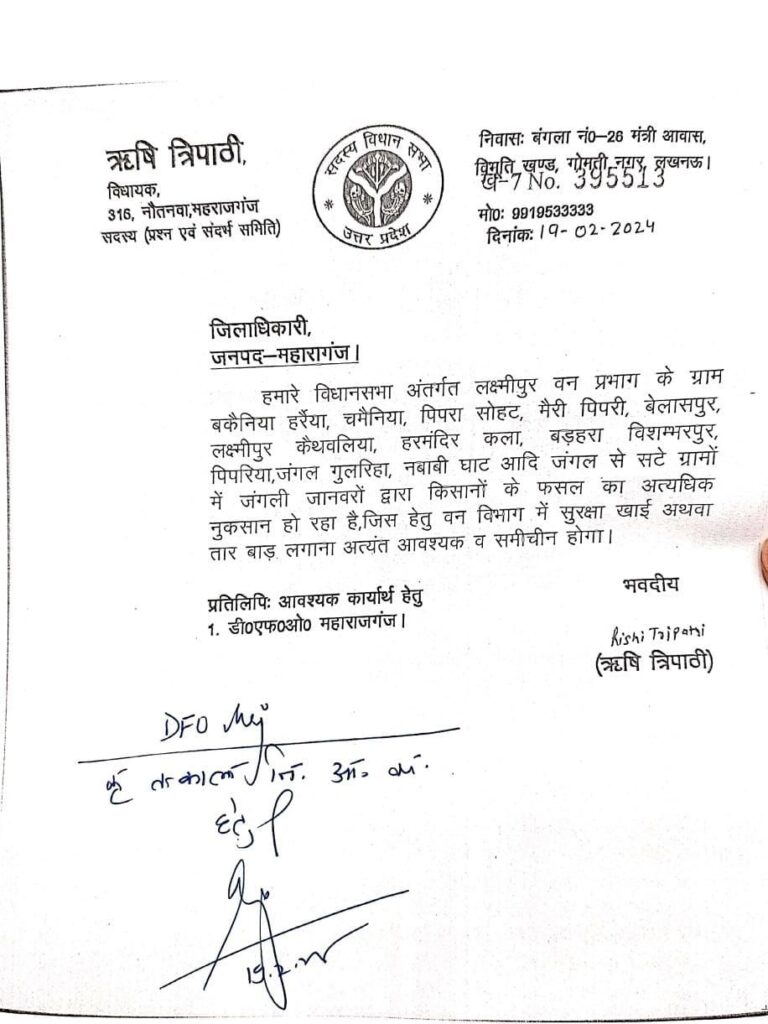 ऋषि त्रिपाठी,
विधायक,
316, नौतनवा,महराजगंज
सदस्य (प्रश्न एवं संदर्भ समिति)
सदस्य विधान सभा
उत्तर प्रदेश
निवासः बंगला नं0–26 मंत्री आवास,
विभूति खण्ड, गोमती नगर, लखनऊ।
ख-7 No. 395513
मो0: 9919533333
दिनांक: 19-02-2024
जिलाधिकारी,
जनपद–महारागंज।
हमारे विधानसभा अंतर्गत लक्ष्मीपुर वन प्रभाग के ग्राम
बकैनिया हर्रैया, चमैनिया, पिपरा सोहट, मैरी पिपरी, बेलासपुर,
लक्ष्मीपुर कैथवलिया, हरमंदिर कला, बड़हरा विशम्भरपुर,
पिपरिया,जंगल गुलरिहा, नबाबी घाट आदि जंगल से सटे ग्रामों
में जंगली जानवरों द्वारा किसानों के फसल का अत्यधिक
नुकसान हो रहा है,जिस हेतु वन विभाग में सुरक्षा खाई अथवा
तार बाड़ लगाना अत्यंत आवश्यक व समीचीन होगा।
भवदीय
प्रतिलिपिः आवश्यक कार्यार्थ हेतु
1. डी0एफ0ओ0 महाराजगंज।
Rishi Tripathi
(ऋषि त्रिपाठी)
DFO
तत्काल
हेतु